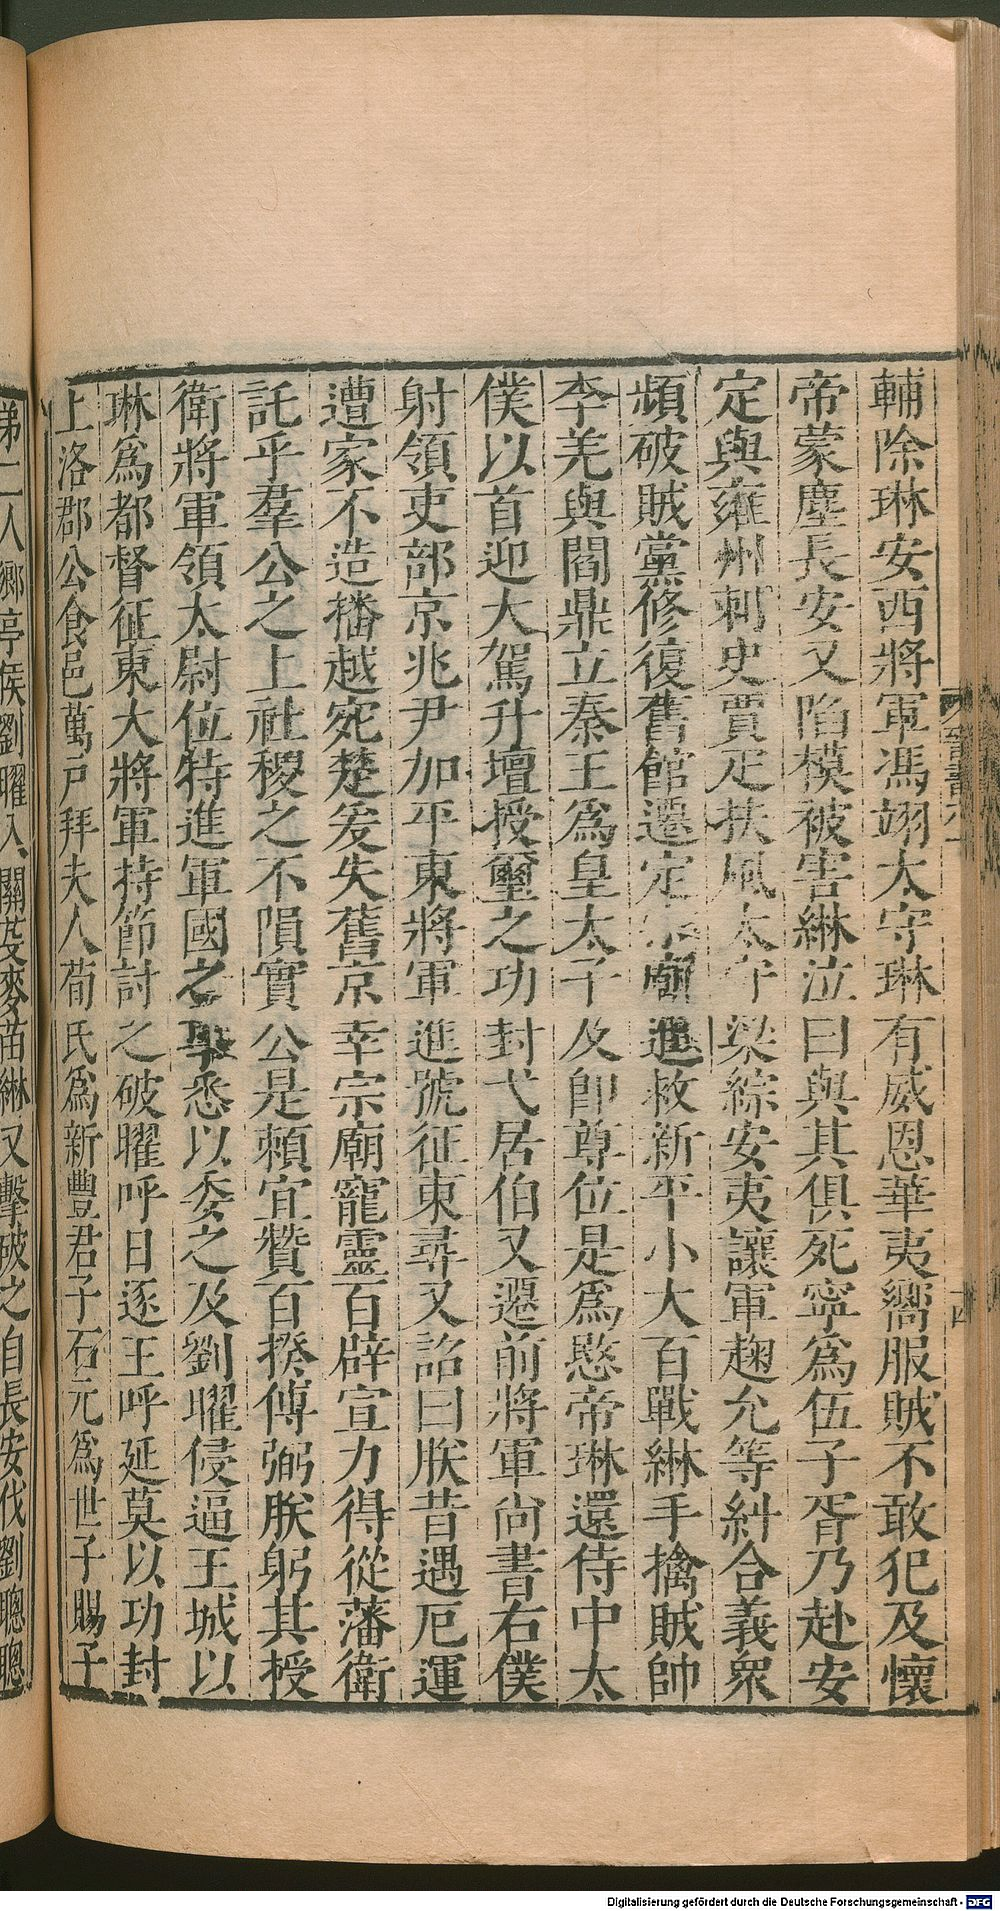 輔除琳安西將軍馮翊太守琳有威恩華夷嚮服賊不敢犯及懷
帝蒙塵長安又陷模被害綝泣曰與其俱死寧爲伍子胥乃赴安
定與雍州刺史賈疋扶風太守梁綜安夷護軍麹允等糾合義衆
頻破賊黨修復舊館遷定宗廟進救新平小大百戰綝手擒賊帥
李羌與閻鼎立秦王爲皇太子及即尊位是爲愍帝琳還侍中太
僕以首迎大駕升壇授璽之功封弋居伯又遷前將軍尚書右僕
射領吏部京兆尹加平東將軍進號征東尋又詔曰朕昔遇厄運
遭家不造播越宛楚爰失舊京幸宗廟寵靈百辟宣力得從藩衛
託乎羣公之上社稷之不隕實公是賴宜贊百揆傅弼朕躬其授
衛將軍領太尉位特進軍國之事悉以委之及劉曜侵逼王城以
琳爲都督征東大將軍持節討之破曜呼日逐王呼延莫以功封
上洛郡公食邑萬戸拜夫人荀氏爲新豐君子石元爲世子賜子
弟二人鄉亭侯劉曜入關芟麥苗綝又擊破之自長安伐劉聰聰
十四
Digitalisierung gefördert durch die Deutsche Forschungsgemeinschaft - DFG